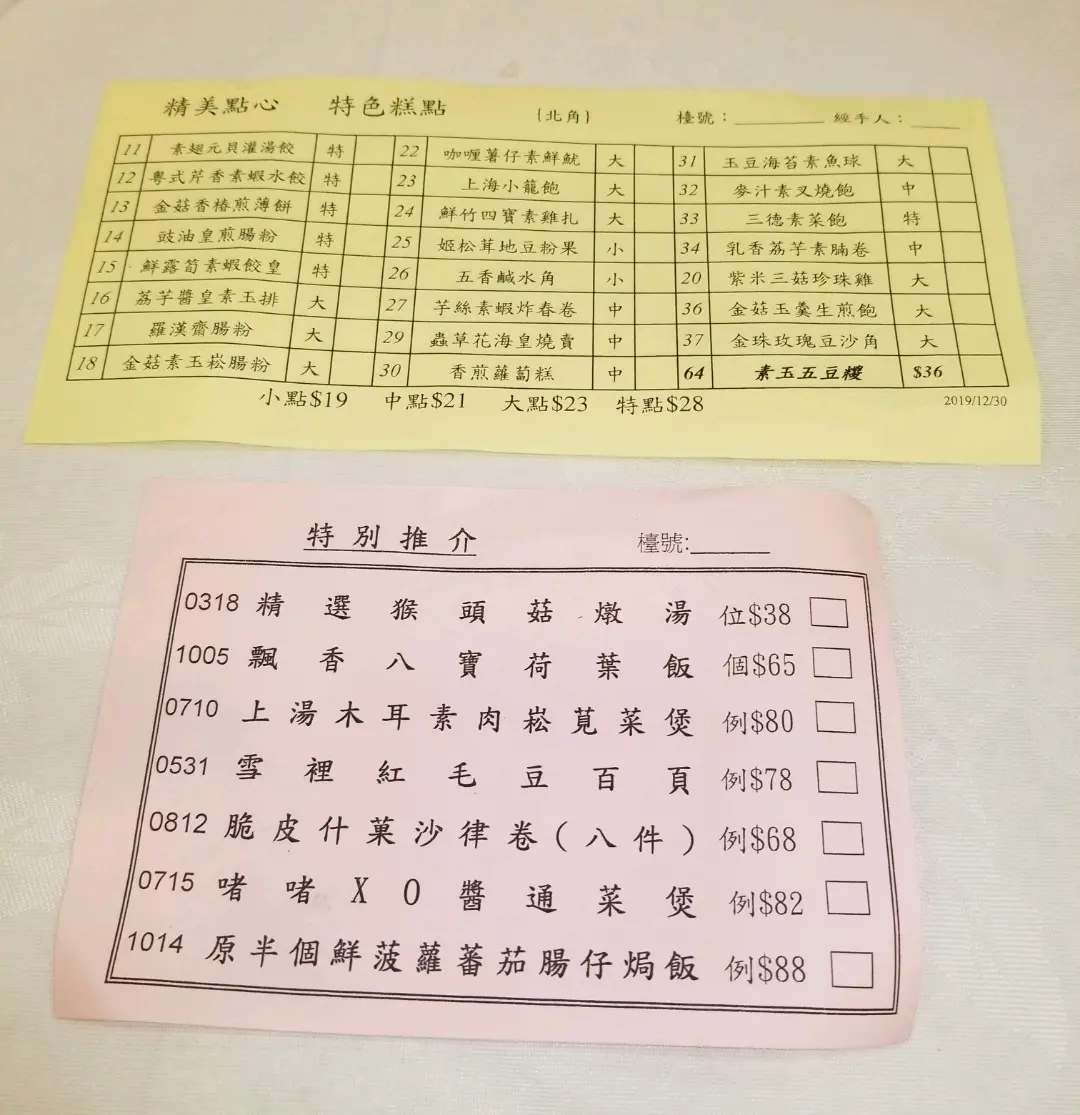 精美點心 特色糕點 {北角} 檯號：________ 經手人：_____
11 素翅元貝灌湯餃 特 22 咖喱薯仔素鮮魷 大 31 玉豆海苔素魚球 大
12 粵式芹香素蝦水餃 特 23 上海小籠飽 大 32 麥汁素叉燒飽 中
13 金菇香椿煎薄餅 特 24 鮮竹四寶素雞扎 大 33 三德素菜飽 特
14 豉油皇煎腸粉 特 25 姬松茸地豆粉果 小 34 乳香荔芋素腩卷 中
15 鮮露荀素蝦餃皇 特 26 五香鹹水角 小 20 紫米三菇珍珠雞 大
16 荔芋醬皇素玉排 大 27 芋絲素蝦炸春卷 中 36 金菇玉羹生煎飽 大
17 羅漢齋腸粉 大 29 蟲草花海皇燒賣 中 37 金珠玫瑰豆沙角 大
18 金菇素玉崧腸粉 大 30 香煎蘿蔔糕 中 64 素玉五豆糭 $36
小點$19 中點$21 大點$23 特點$28 2019/12/30
特別推介 檯號:_______
0318 精選猴頭菇燉湯 位$38
1005 飄香八寶荷葉飯 個$65
0710 上湯木耳素肉崧莧菜煲 例$80
0531 雪裡紅毛豆百頁 例$78
0812 脆皮什菓沙律卷(八件) 例$68
0715 啫啫XO醬通菜煲 例$82
1014 原半個鮮菠蘿蕃茄腸仔焗飯 例$88